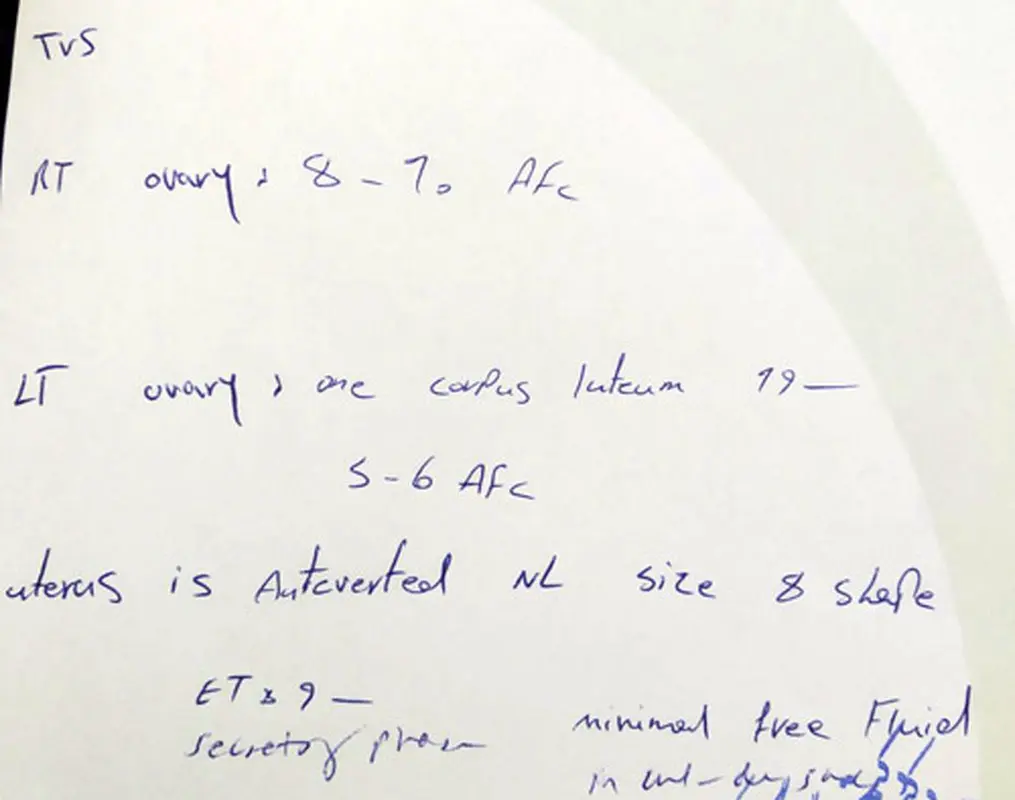 TVS
RT ovary: 8-10 AFC
LT ovary: one corpus luteum 19
5-6 AFC
uterus is Anteverted NL size & shape
ET: 9
secretory phase
minimal free Fluid
in cul-